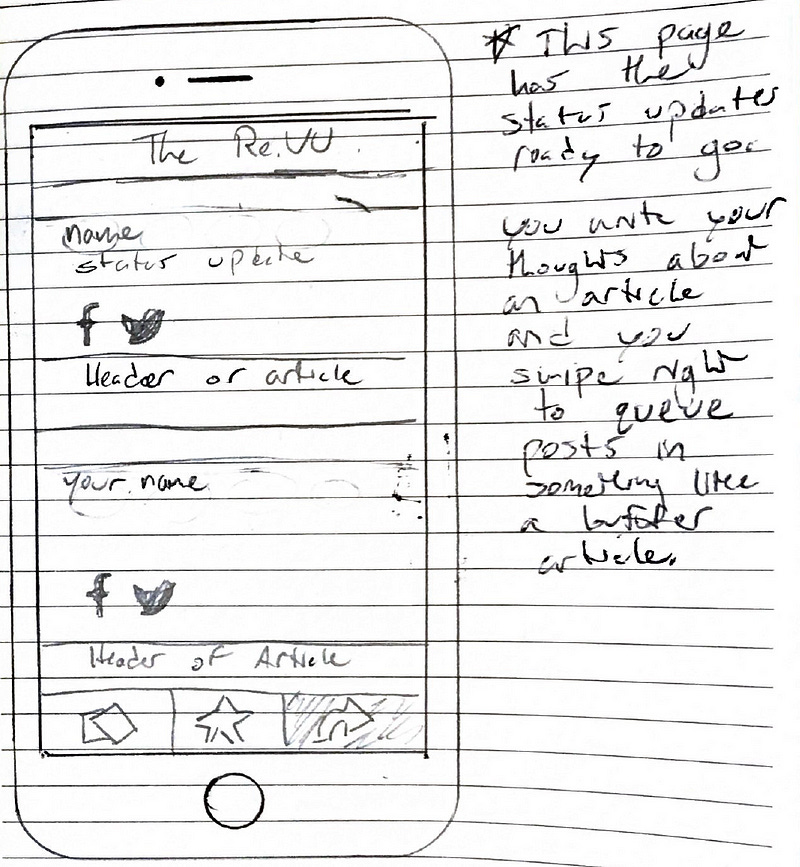 The Re.VU
name
status update
Header or article
your name
Header of Article
* This page
has the
status updates
ready to go.
you write your
thoughts about
an article
and you
swipe right
to queue
posts in
something like
a buffer
article.